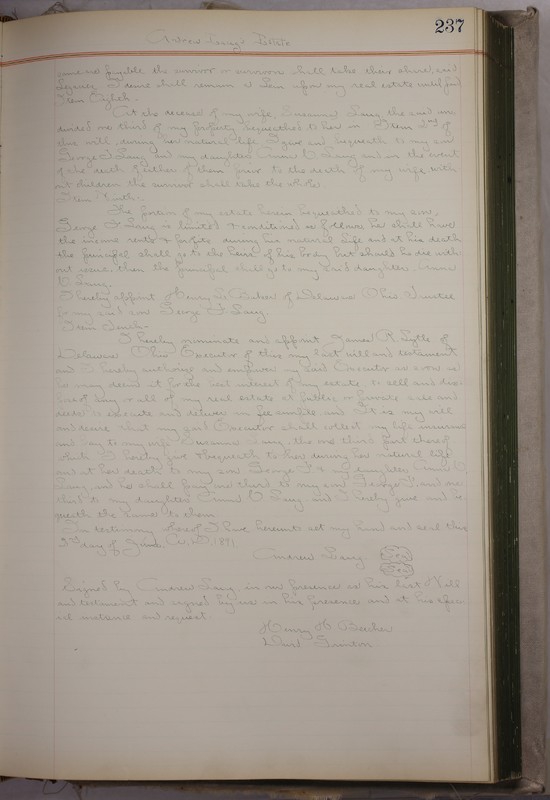 237
Andrew Lang's Estate
the survivor or survivors shall take their share, said
Legacy I desire shall remain a Lien upon my real estate until paid
Item Eighth.
At the decease of my wife, Susanna Lang, the said un-
divided one third of my property bequeathed to her in Item 2nd of
this will, during her natural life I give and bequeath to my son
George F. Lang and my daughter Anna V. Lang and in the event
of the death of either of them prior to the death of my wife with-
out children the survivor shall take the whole
Item Ninth.
The portion of my estate herein bequeathed to my son,
George F. Lang is limited & conditioned as follows he shall have
the income rents & profits during his natural life and at his death
the principal shall go to the heirs of his body but should he die with-
out issue, then the principal shall go to my said daughter Anna
V. Lang.
I hereby appoint Henry of Delaware Ohio Trustee
for my said son George F. Lang.
Item Tenth.
I hereby nominate and appoint James R. Lytle of
Delaware Ohio Executor of this my last will and testament
and I hereby authorize and empower my said Executor as soon as
he may deem it for the best interest of my estate, to sell and dis-
pose of any or all of my real estate at public or private sale and
deeds to execute and deliver in fee simple, and It is my will
and desire that my said Executor shall collect my life insurance
and pay to my wife Susanna Lang, the one third part thereof
I hereby give & bequeath to her during her natural life
and at her death to my son George F. & my daughter Anna V.
Lang, and he shall pay one third to my son George F. and one
third to my daughter Anna V. Lang and I hereby give and be-
queath the same to them.
In testimony whereof I have hereunto set my hand and seal this
3rd day of June, A.D. 1891.
Andrew Lang
Signed by Andrew Lang, in our presence as his last Will
and testament and signed by us in his presence and at his espec-
ial instance and request.
Henry H. Beecher